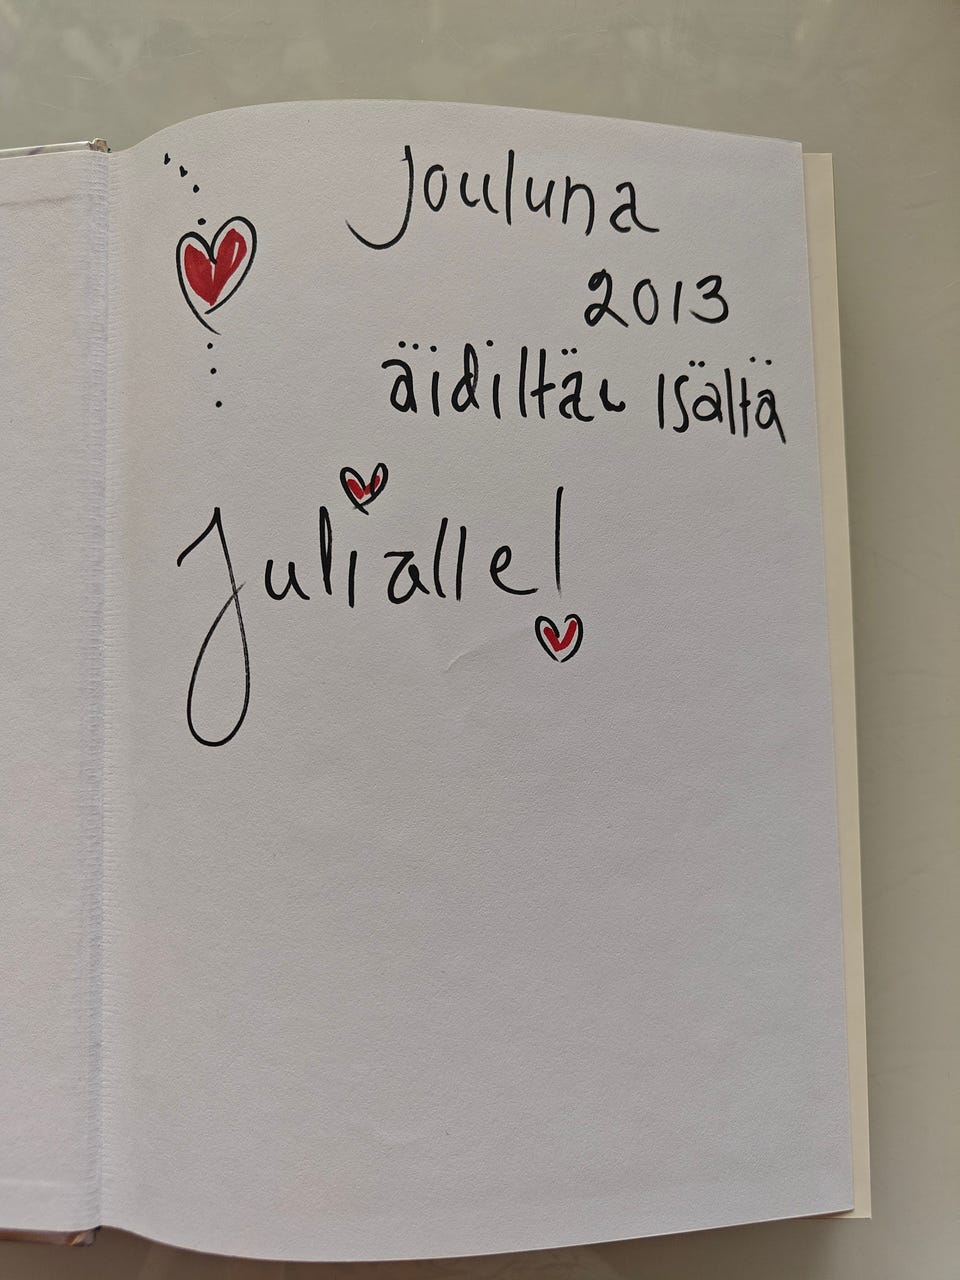 Jouluna
2013
äidiltä isältä
Julialle!